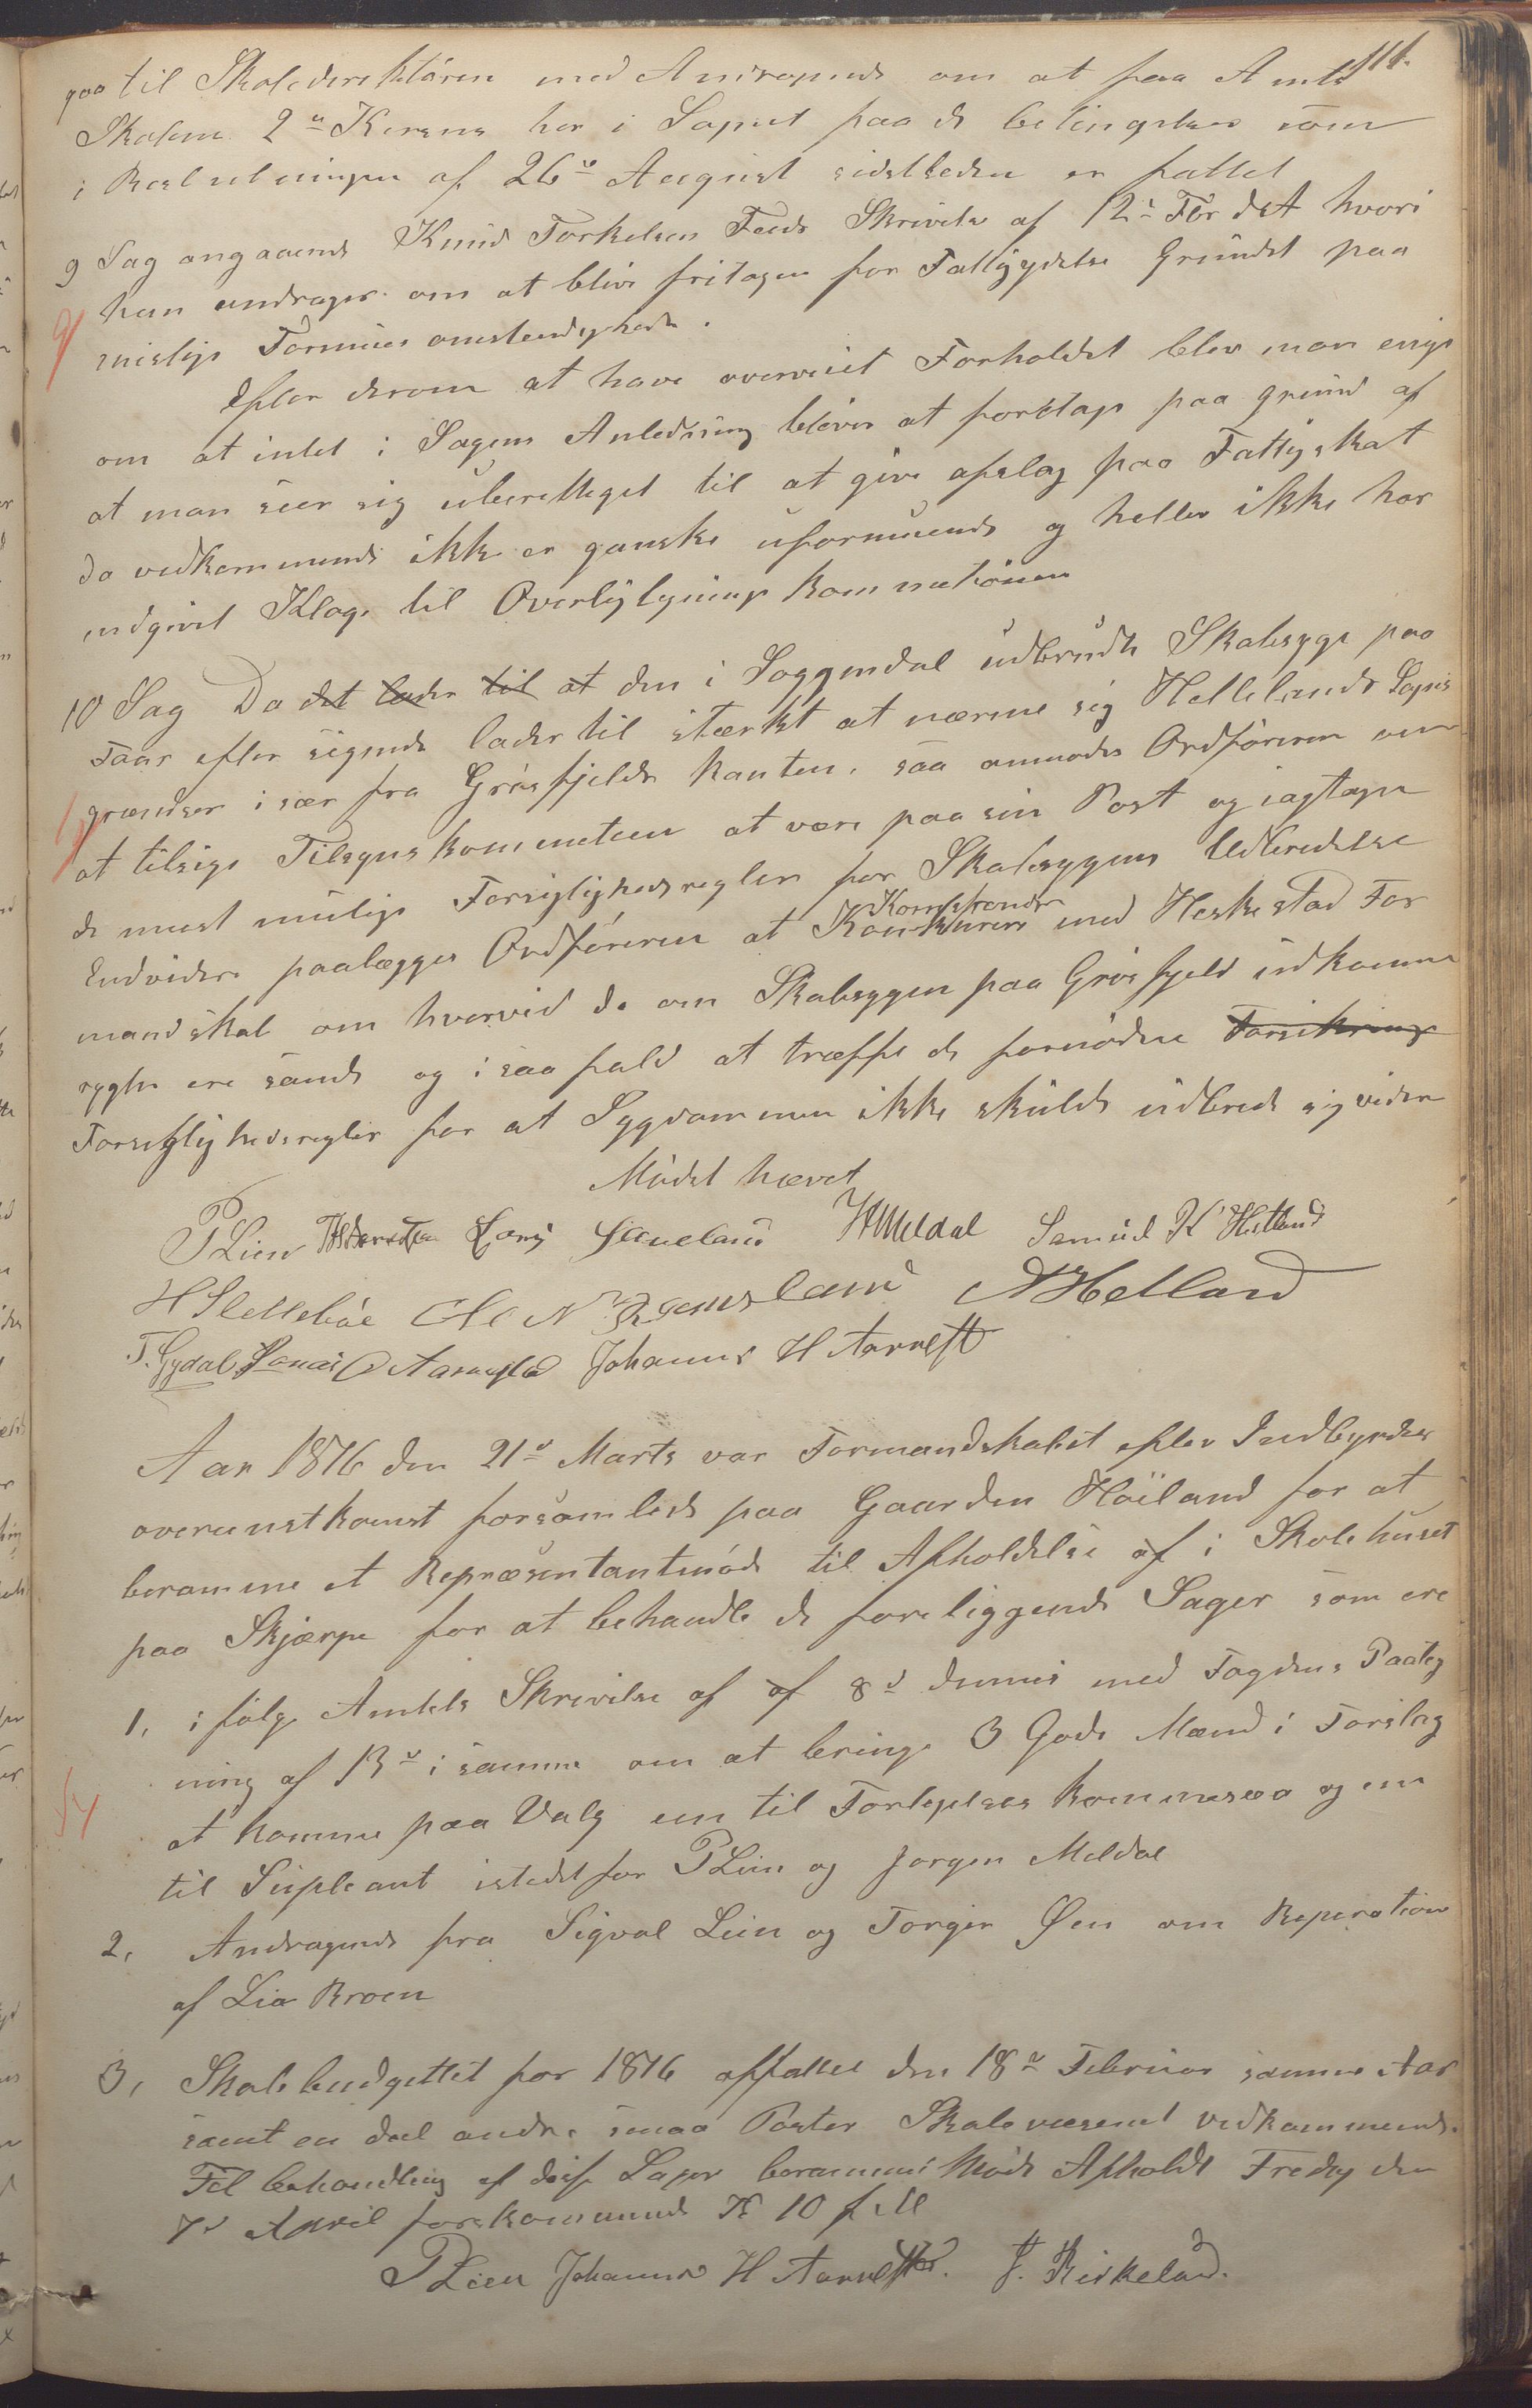 111.
gaa til Skoledirektören med Andragende om at faa Amts
Skolens 2den Kursus her i Sognet paa de betingelser som
i Beslutningen af 26de August sidstleden er fattet
9 Sag angaaende Knud Torkelsen Feds Skrivelse af 12te Fbr det hvori
han andrager om at blive fritagen for Fattigydelse Grundet paa
9/ mislige Formues omstendigheder.
Efter derom at have overveiet Forholdet blev man enige
om at intet i Sagens Anledning bliver at foretage paa grund af
at man seer sig uberettiget til at give afslag paa Fattigskat
da vedkommende ikke er ganske uformuende og heller ikke har
indgivet Klage til Overligningskommitionen
10 Sag Da det lader til at den i Soggendal udbrudte Skabsyge paa
Faar efter sigende lader til stærkt at nærme sig Hellelands Sogns
grændser i sær fra Grösfjelds kanten, saa anmodes Ordföreren om
10/ at tilsige Tilsynskommiteen at være paa sin Post og iagtage
de mest mulige Forsiglighedsregler for Skabsygens Udbredelse
Korrespondere
Endvidere paalægges Ordföreren at Konkurere med Heskestad For
mandskab om hvorvid de om Skabsygen paa Grösfjeld udkomne
rygter ere sande og i saa fald at træffe de fornödne Forsikrings
Forsiglighedsregler for at Sygdommen ikke skulde udbrede sig videre
Mödet hævet
PLien Lars Skaeland HMeldal Samuel K Hetland
H Slettebøe Ole N Ramsland NHelland
T. Gydal Jonas O Aarrestad Johannes H Aarrestad
Aar 1876 den 21de Marts var Formandskabet efter Indbyrdes
overenstkomst forsamlede paa Gaarden Höiland for at
beramme et Repræsentantmöde til Afholdelse af i Skolehuset
paa Skjærpe for at behandle de foreliggende Sager som ere
1, i fölge Amtets Skrivelse af af 8de dennes med Fogdens Paateg
ning af 13de i samme om at bringe 3 Gode Mænd i Forslag
at komme paa Valg en til Forligelses kommisær og en
til Supleant istedetfor PLien og Jorgen Meldal
2, Andragende fra Sigval Lien og Torger Øen om Reperation
af Lia Broen
3, Skolebudgettet for 1876 affattet den 18de Februar samme Aar
samt en deel andre smaa Poster Skolevæsenet vedkommende.
Til behandling af disse Sager berammes Möde Afholdt Fredag den
7de April forekommende Kl 10 f M
PLien Johannes H Aarrestad. J. Birkeland.